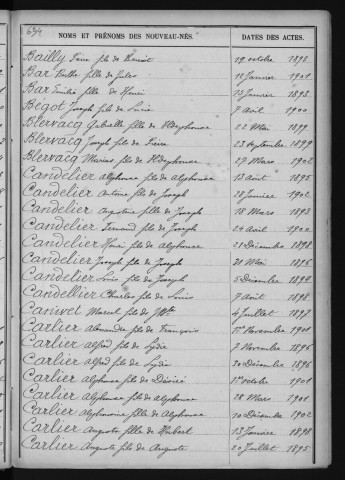 634
NOMS ET PRÉNOMS DES NOUVEAU-NÉS.
DATES DES ACTES.
Bailly fils de Benoit 19 octobre 1898
Bar Berthe fille de Jules 12 Janvier 1901
Bar Emilie fille de Henri 13 Janvier 1898
Bégot Joseph fils de 7 Avril 1900
Blervacq Gabrielle fille de Ildephonse 22 Mai 1899
Blervacq Joseph fils de Pierre 23 septembre 1899
Blervacq Marius fils de Ildephonse 27 Mars 1902
Candelier Alphonse fils de Alphonse 13 Août 1895
Candelier Antoine fils de Joseph 28 Janvier 1902
Candelier Augustine fille de Joseph 18 Mars 1893
Candelier Fernand fils de Joseph 24 Avril 1900
Candelier Henri fils de Alphonse 21 Décembre 1898
Candelier Joseph fils de Joseph 20 Mai 1896
Candelier Louis fils de Joseph 5 Décembre 1899
Candellier Charles fils de Louis 7 Août 1898
Canivet Marcel fils de 4 Juillet 1897
Carlier Alexandre fils de François 1er Novembre 1901
Carlier Alfred fils de Lydie 7 Novembre 1896
Carlier Alfred fils de Lydie 30 Décembre 1896
Carlier Alphonse fils de Désiré 1er octobre 1901
Carlier Alphonse fils de Alphonse 28 Mars 1901
Carlier Alphonsine fille de Alphonse 10 Décembre 1902
Carlier Auguste fille de Hubert 13 Janvier 1898
Carlier Auguste fils de Auguste 20 Juillet 1895